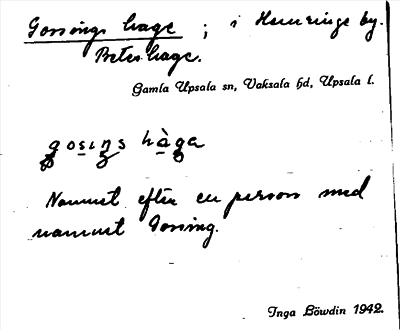 Gossings hage ; i Hemringe by.
Beteshage.
Gamla Upsala sn, Vaksala hd, Upsala l.
gosiŋs hàga
Namnet efter en person med
namnet Gossing.
Inga Löwdin 1942.